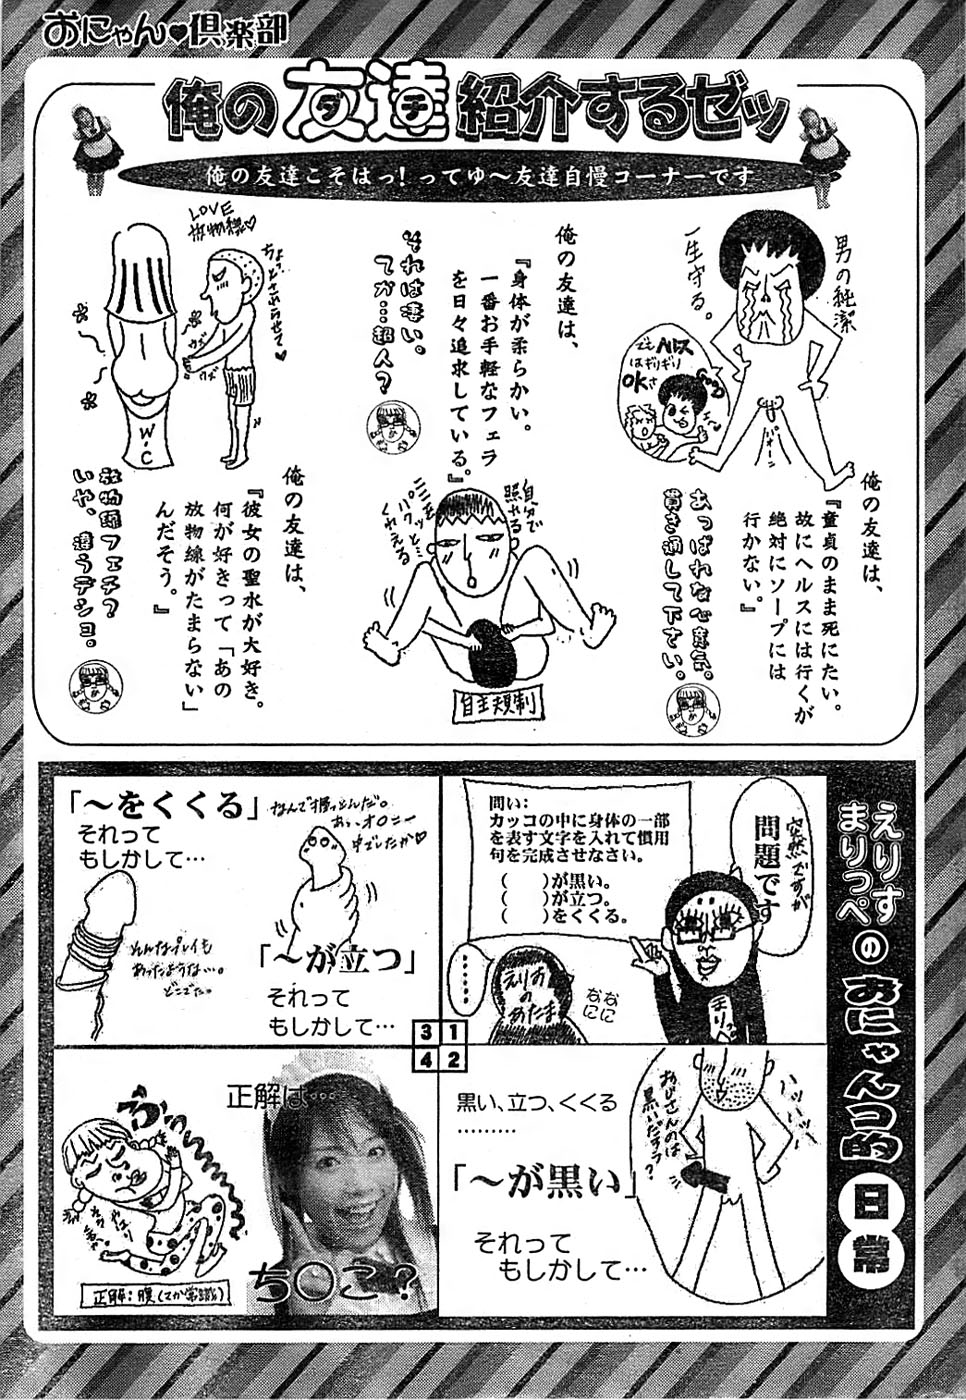 おにゃん♥倶楽部
俺の友達紹介するゼッ
ダチ
俺の友達こそはっ!ってゆ〜友達自慢コーナーです
男の純潔
一生守る。
でもヘルス
はギリギリ
OKさ
Good
俺の友達は、
『童貞のまま死にたい。
故にヘルスには行くが
絶対にソープには
行かない。』
あっぱれな心意気。
貫き通して下さい。
俺の友達は、
『身体が柔らかい。
一番お手軽なフェラ
を日々追求している。』
それは凄い。
てか…超人?
自分で
照れる
パクッと…
くわえる
自主規制
LOVE
放物線♡
ちょっとさわらせて♡
W・C
俺の友達は、
『彼女の聖水が大好き。
何が好きって「あの
放物線がたまらない」
んだそう。』
放物線フェチ?
いや、違うデショ。
えりす
まりっぺ
のおにゃんコ的日常
突然ですが
問題です
問い:
カッコの中に身体の一部
を表す文字を入れて慣用
句を完成させなさい。
(　　)が黒い。
(　　)が立つ。
(　　)をくくる。
えりすの
あたま
なになに
まりっぺ
1
黒い、立つ、くくる
………
「〜が黒い」
それって
もしかして…
おじさんのは
黒いだすラ?
2
「〜が立つ」
それって
もしかして…
「〜をくくる」
それって
もしかして…
そんなプレイも
あったような…。
どこでだ。
3
正解は…
ち○こ?
正解:腹(てか常識)
4